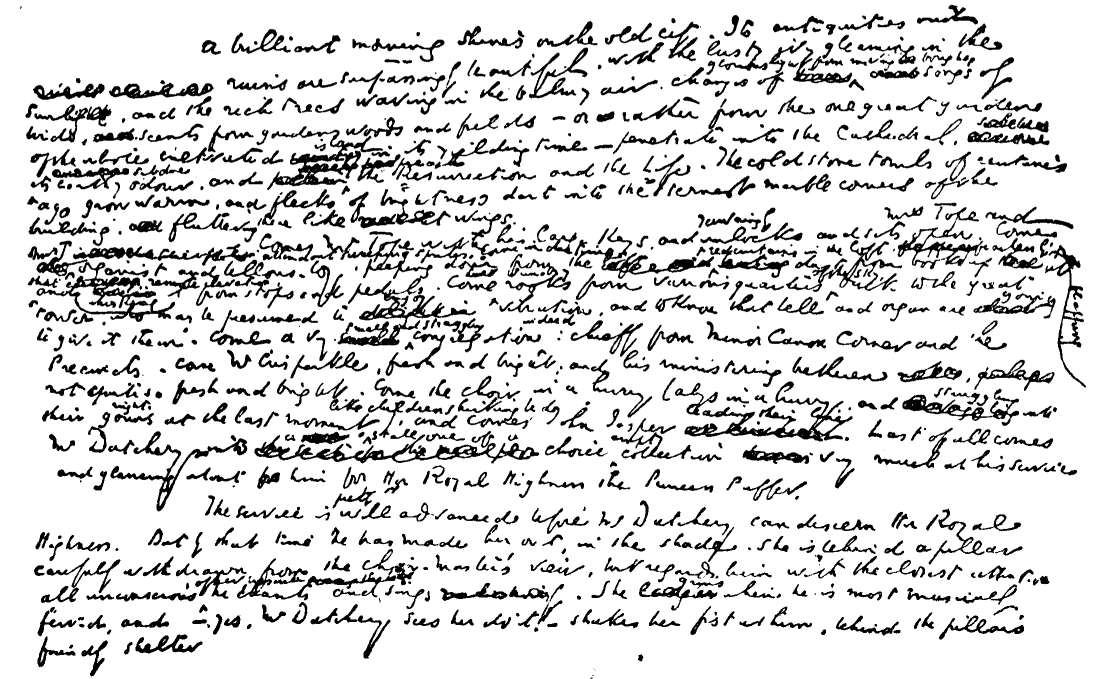 A brilliant morning shines on the old city. Its antiquities and
ruins are surpassingly beautiful, with the lusty ivy gleaming in the
gloriously light from moving boughs
sunlight, and the rich trees waving in the balmy air. Changes of songs of
birds, scents from gardens woods and fields – or rather from the one great garden
island
of the whole cultivated in its yielding time – penetrate into the Cathedral,
subdue
its earthy odour, and preach the Resurrection and the Life. The cold stone tombs of centuries
ago grow warm, and flecks of brightness dart into the sternest marble corners of the
building, fluttering there like wings.
Comes Mr Tope with his large keys, and yawningly unlocks and sets open. Comes Mrs Tope and
attendant sweeping sprites. Come in due time
organist and bellows boy, peeping down from the in the loft, from books
remote elevation
and from stops and pedals. Come rooks from various quarters of the sky, back to the great
tower, who may be presumed to vibration, and to know that bell and organ are going
to give it them. Come a very small and straggling congregation indeed: chiefly from Minor Canon Corner and the
Precincts. Come Mr Crisparkle, fresh and bright, and his ministering brethren
not quite so fresh and bright. Come the choir in a hurry (always in a hurry, and struggling into
their nightgowns at the last moment, like children shirking bed), and comes John Jasper leading their line. Last of all comes
Mr Datchery into a stall, one of a choice empty collection very much at his service
and glancing about him for Her Royal Highness the Princess Puffer.
The service is pretty well advanced before Mr Datchery can discern Her Royal
Highness. But by that time he has made her out, in the shade. She is behind a pillar
carefully withdrawn from the choir-master's view, but regards him with the closest attention.
all unconscious of her presence he chants and sings. She grins when he is most musically
fervid, and – yes, Mr Datchery sees her do it! – shakes her fist at him, behind the pillar's
friendly shelter